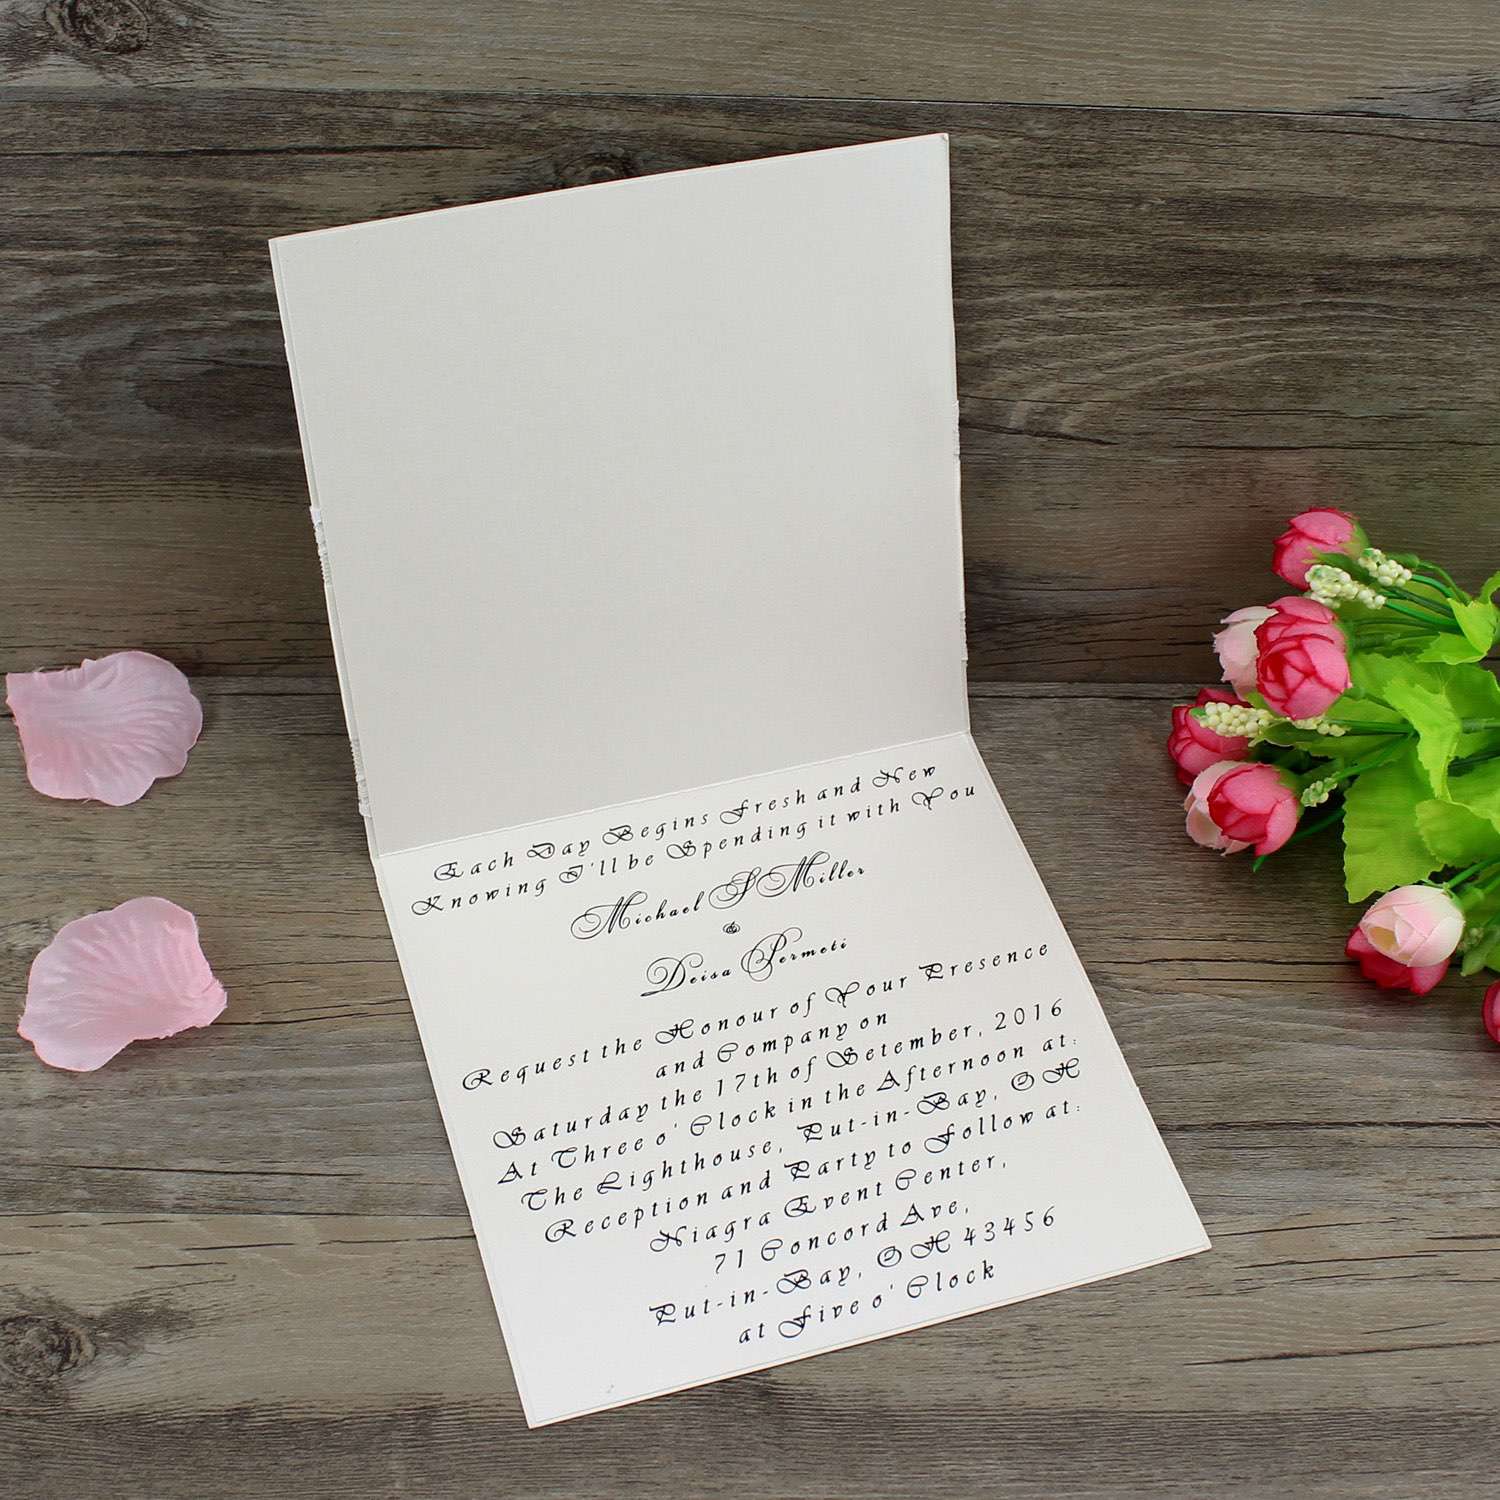 Each Day Begins Fresh and New
Knowing I'll be Spending it with You
Michael S Miller
&
Deisa Permeti
Request the Honour of Your Presence
and Company on
Saturday the 17th of Setember, 2016
At Three o' Clock in the Afternoon at:
The Lighthouse, Put-in-Bay, OH
Reception and Party to Follow at:
Niagra Event Center,
71 Concord Ave,
Put-in-Bay, OH 43456
at Five o' Clock